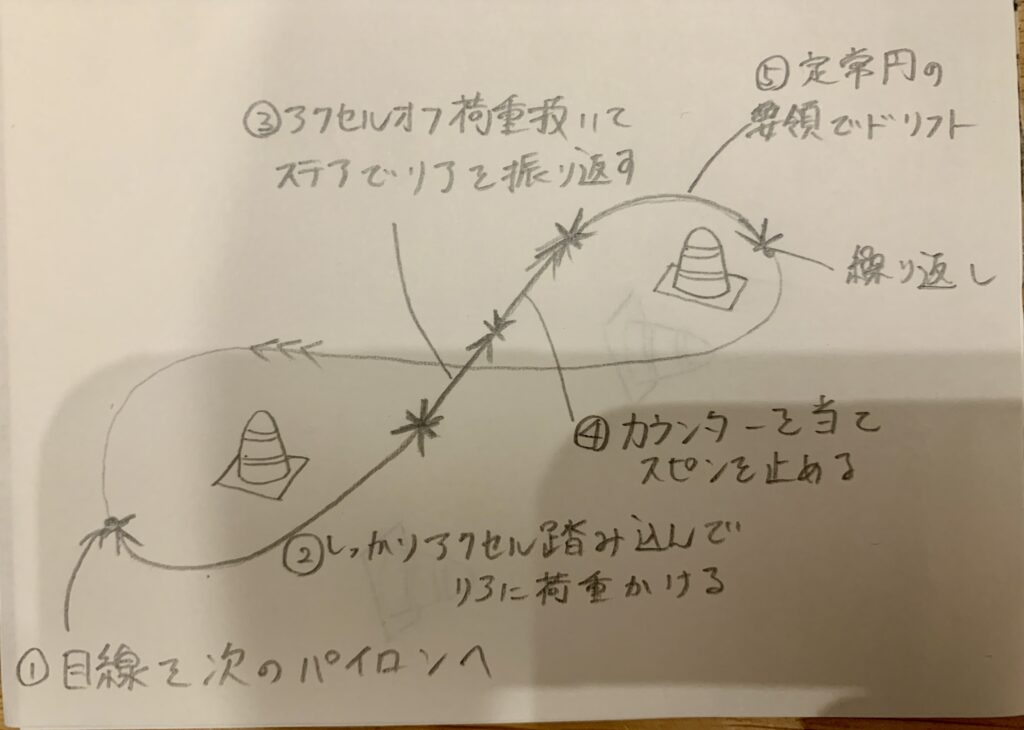 ⑤定常円の
要領でドリフト
③アクセルオフ荷重抜いて
ステアでリアを振り返す
繰り返し
④カウンターを当て
スピンを止める
②しっかりアクセル踏み込んで
リアに荷重かける
①目線を次のパイロンへ